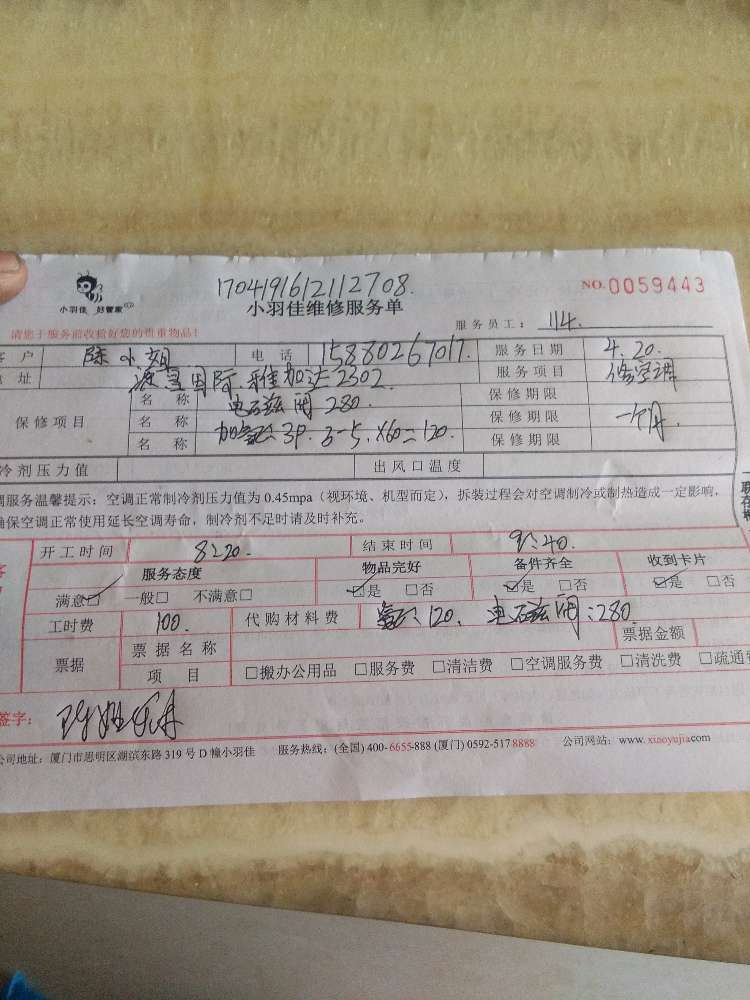 1704191612112708.
小羽佳 好管家
小羽佳维修服务单
NO.0059443
请您于服务前收捡好您的贵重物品!
服务员工: 114.
客户 陈小姐 电话 15880267017. 服务日期 4.20.
址 国际.雅加达2302. 服务项目 修空调
保修项目 名称 电磁阀 280. 保修期限
名称 加氟: 3P. 3-5. ×60=120. 保修期限 一个月
名称 保修期限
冷剂压力值 出风口温度
调服务温馨提示: 空调正常制冷剂压力值为 0.45mpa (视环境、机型而定), 拆装过程会对空调制冷或制热造成一定影响,
确保空调正常使用延长空调寿命, 制冷剂不足时请及时补充。
开工时间 8:20. 结束时间 9:40.
服务态度 物品完好 备件齐全 收到卡片
满意☑ 一般□ 不满意□ ☑是 □否 ☑是 □否 ☑是 □否
工时费 100. 代购材料费 氟: 120. 电磁阀: 280.
票据 票据名称 票据金额
项目 □搬办公用品 □服务费 □清洁费 □空调服务费 □清洗费 □疏通费
签字:
公司地址: 厦门市思明区湖滨东路 319 号 D 幢小羽佳 服务热线: (全国) 400-6655-888 (厦门) 0592-5178888 公司网站: www.xiaoyujia.com